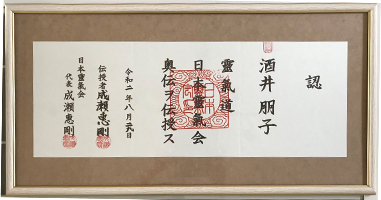 認
酒井 朋子
靈氣道
日本靈氣会
奥伝ヲ伝授ス
令和二年八月六日
伝授者 成瀬惠剛
日本靈氣会
代表 成瀬惠剛